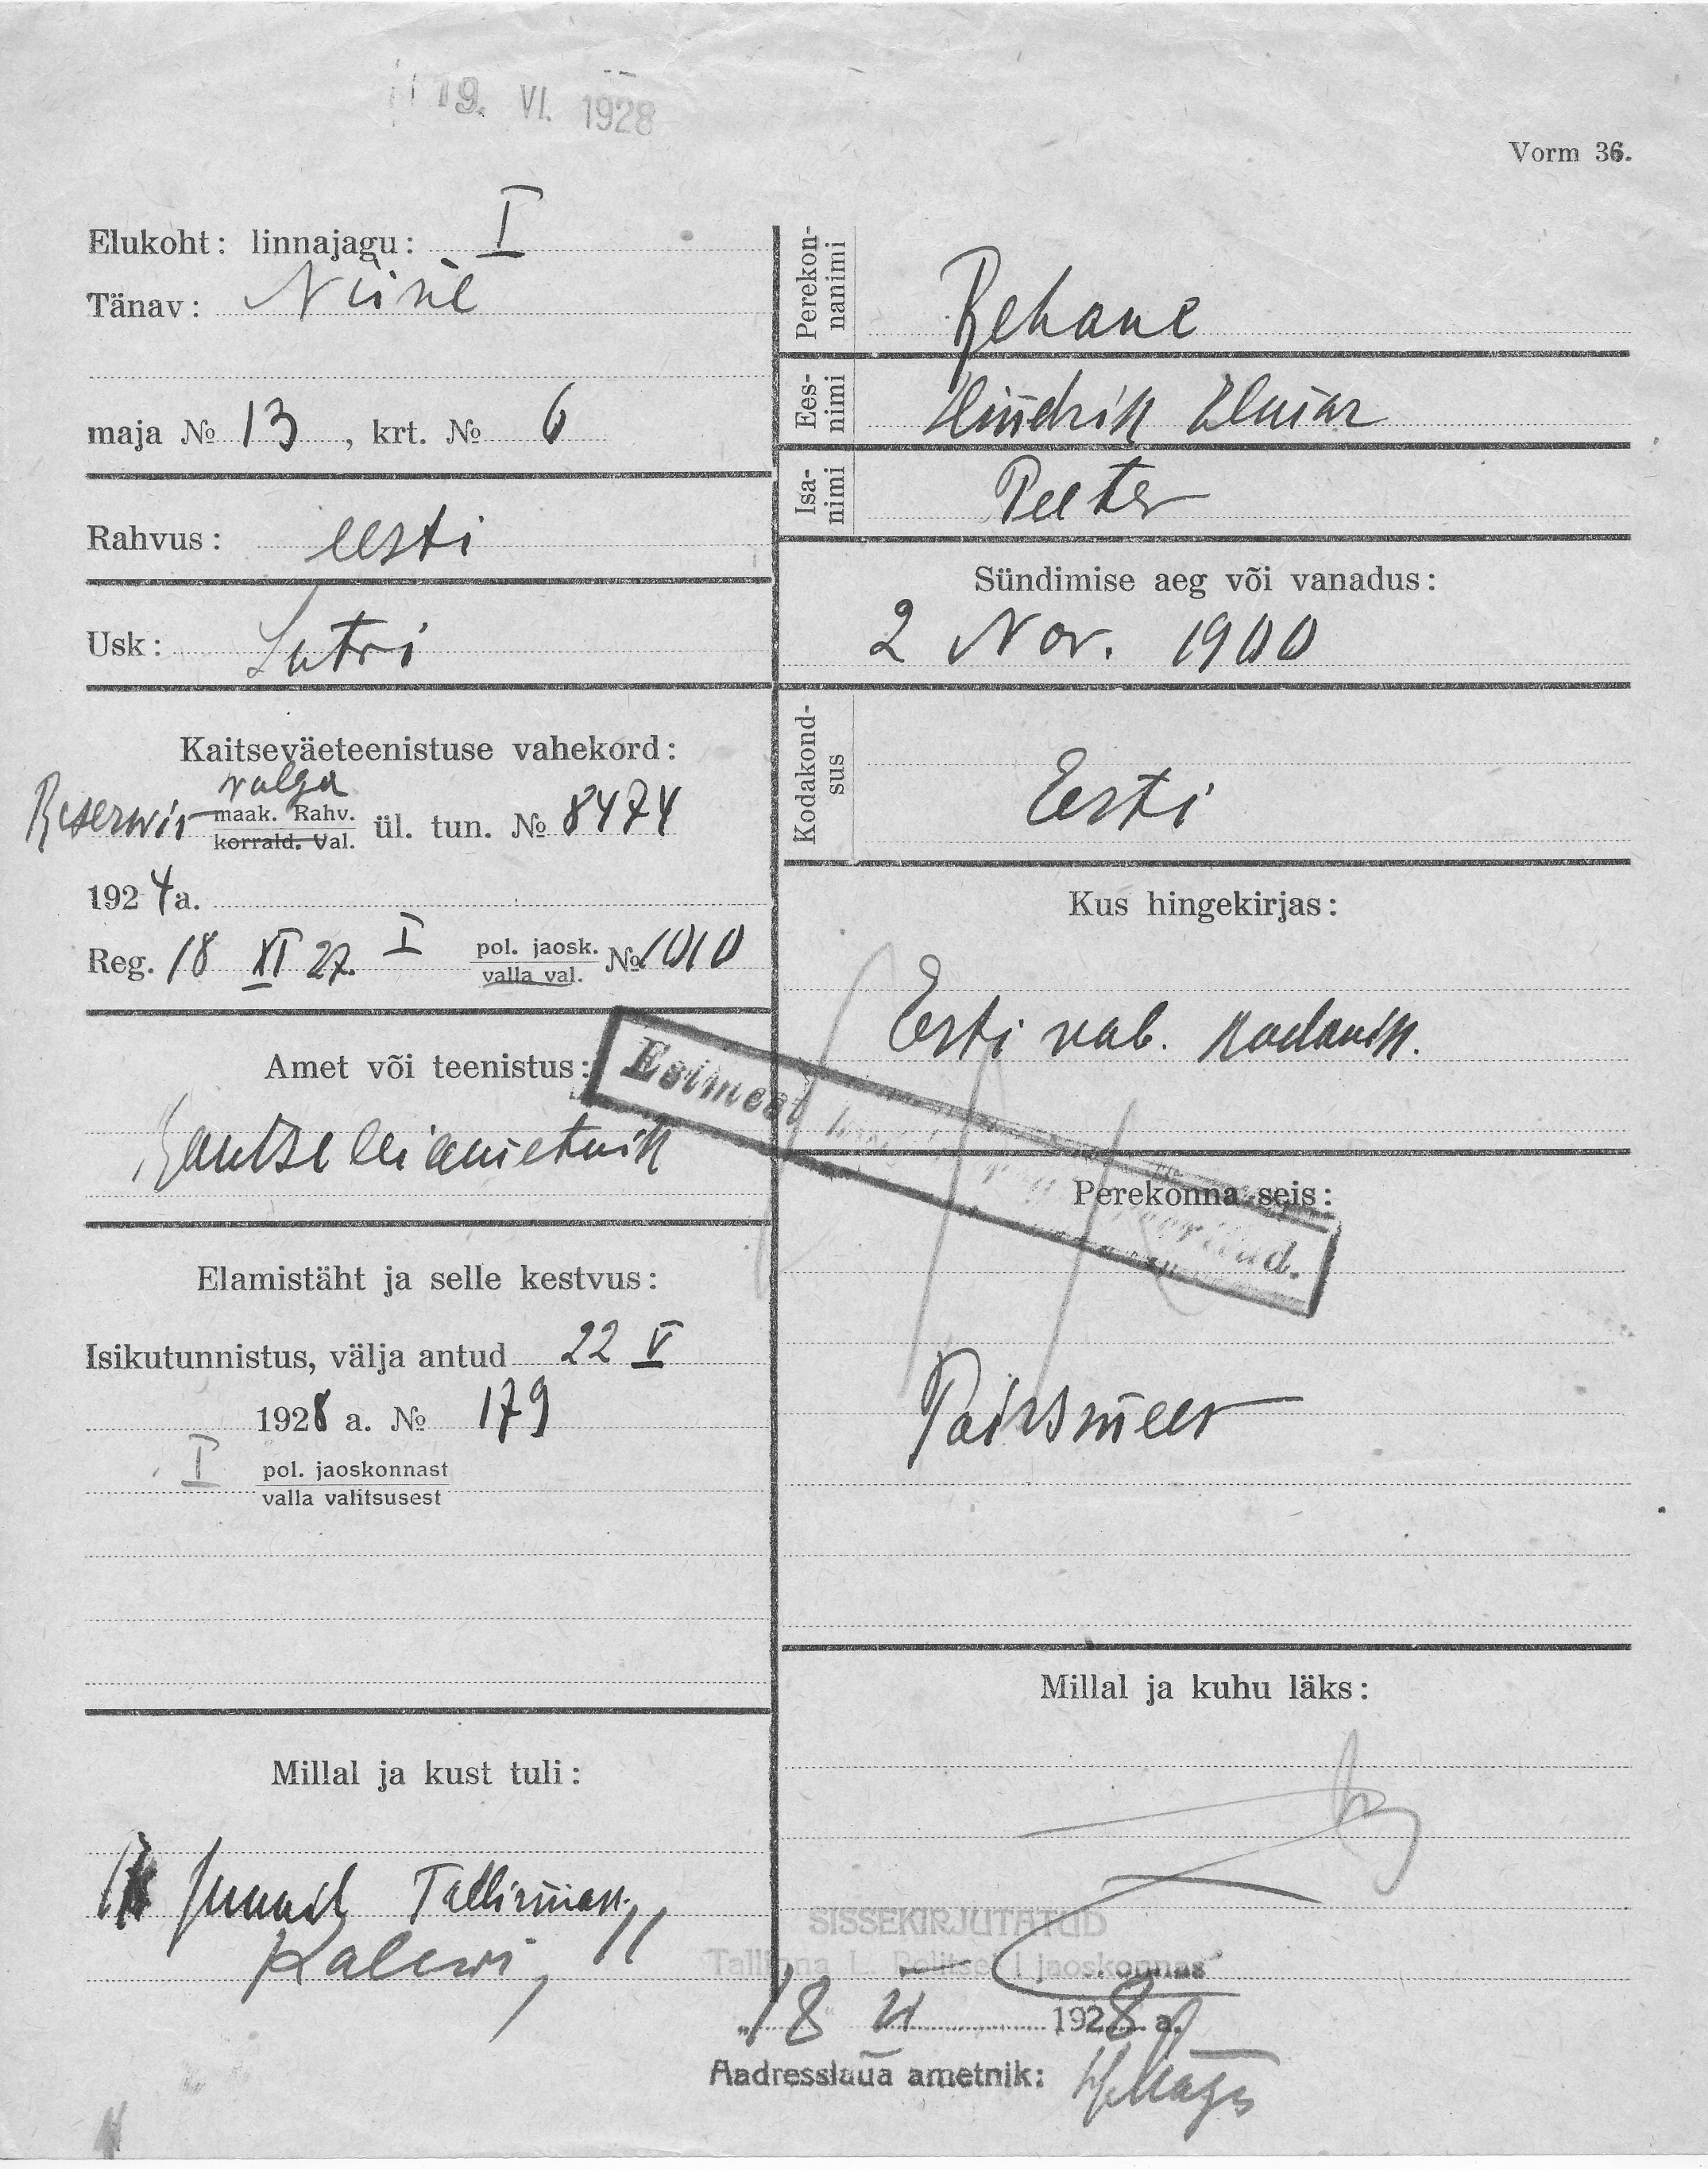 19. VI. 1928
Vorm 36.
Elukoht: linnajagu: I
Tänav: Niine
maja № 13, krt. № 6
Rahvus: eesti
Usk: Lutri
Kaitseväeteenistuse vahekord:
valga
Reservis maak. Rahv. ül. tun. № 8474
korrald. Val.
1924 a.
Reg. 18 XI 27. I pol. jaosk. № 1010
valla val.
Amet või teenistus:
Kantseleiametnik
Elamistäht ja selle kestvus:
Isikutunnistus, välja antud 22 V
1928 a. № 179
I pol. jaoskonnast
valla valitsusest
Millal ja kust tuli:
Juunil Tallinnas
Kalevi, 11
Perekon-
nanimi
Rehane
Ees-
nimi
Hindrik Elmar
Isa-
nimi
Peeter
Sündimise aeg või vanadus:
2 Nov. 1900
Kodakond-
sus
Eesti
Kus hingekirjas:
Eesti vab. kodanik.
Esimest
Perekonna seis:
Poissmees
Millal ja kuhu läks:
SISSEKIRJUTATUD
Tallinna L. Politsei I jaoskonnas
"18" VI 1928 a.
Aadresslaua ametnik: